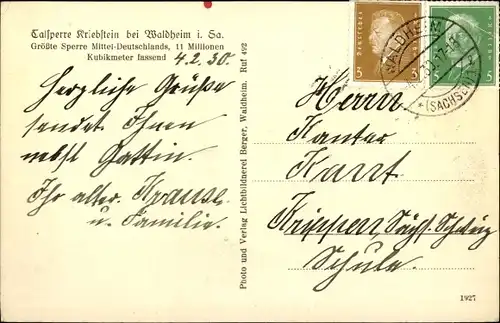 Talsperre Kriebstein bei Waldheim i. Sa.
Größte Sperre Mittel-Deutschlands, 11 Millionen
Kubikmeter fassend 4.2.30.
Herzliche Grüße
sendet Ihnen
nebst Gattin.
Ihr alter Krause
u. Familie.
Photo und Verlag Lichtbildnerei Berger, Waldheim. Ruf 492
Deutsches Reich
3
3
5
WALDHEIM
(SACHSEN)
Herrn
Kantor
Kant
Krippen, Sächs. Schweiz
Schule.
1927